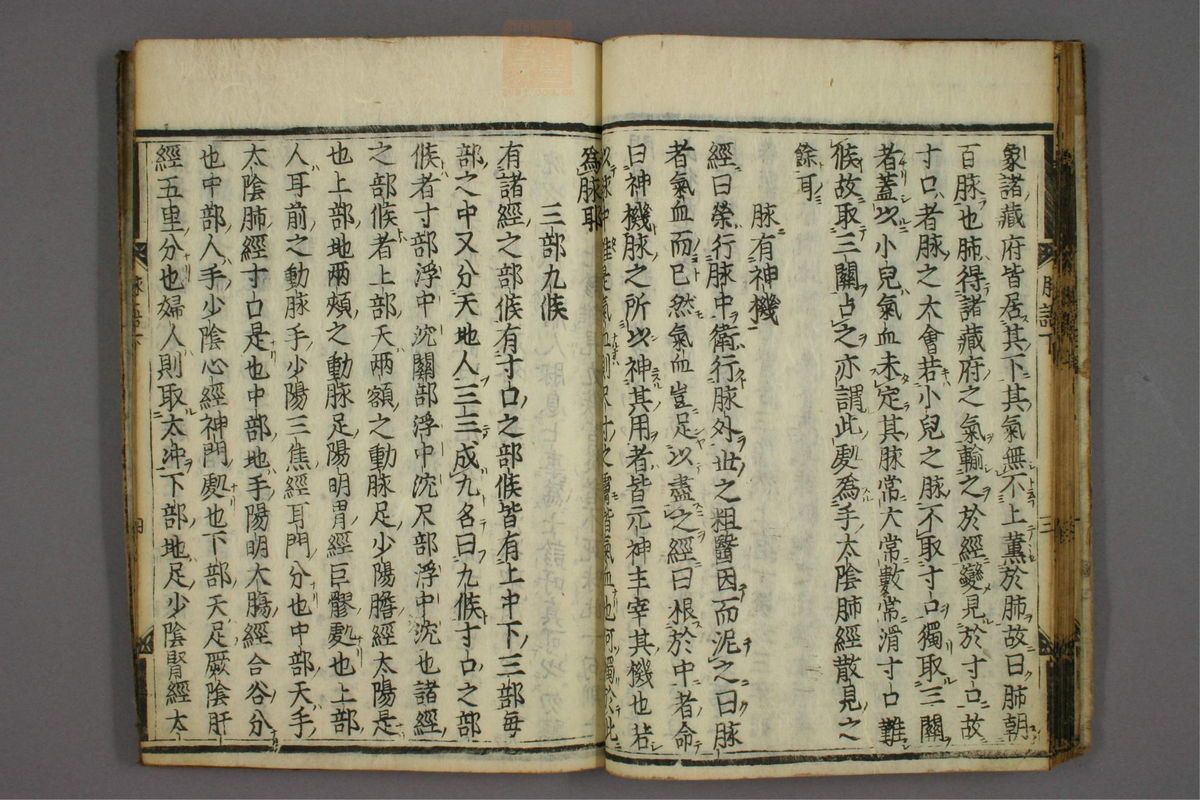 象諸藏府皆居其下其氣無不上薰於肺故曰肺朝
百脉也肺得諸藏府之氣輸之於經變見於寸口故
寸口者脉之大會若小兒之脉不取寸口獨取三關
者蓋以小兒氣血未定其脉常大常數常滑寸口難
候故取三關占之亦謂此處爲手太陰肺經散見之
餘耳
脉有神機
經曰榮行脉中衛行脉外世之粗醫因而泥之曰脉
者氣血而已然氣血豈足以盡之經曰根於中者命
曰神機脉之所以神其用者皆元神主宰其機也若
以脉中 是氣血則尺寸之膚皆氣血也何獨於此
爲脉耶
三部九候
有諸經之部候有寸口之部候皆有上中下三部每
部之中又分天地人三三成九名曰九候寸口之部
候者寸部浮中沈關部浮中沈尺部浮中沈也諸經
之部候者上部天兩額之動脉足少陽膽經太陽是
也上部地兩頰之動脉足陽明胃經巨髎處也上部
人耳前之動脉手少陽三焦經耳門分也中部天手
太陰肺經寸口是也中部地手陽明大腸經合谷分
也中部人手少陰心經神門處也下部天足厥陰肝
經五里分也婦人則取太冲下部地足少陰腎經太
脉語下
三
四